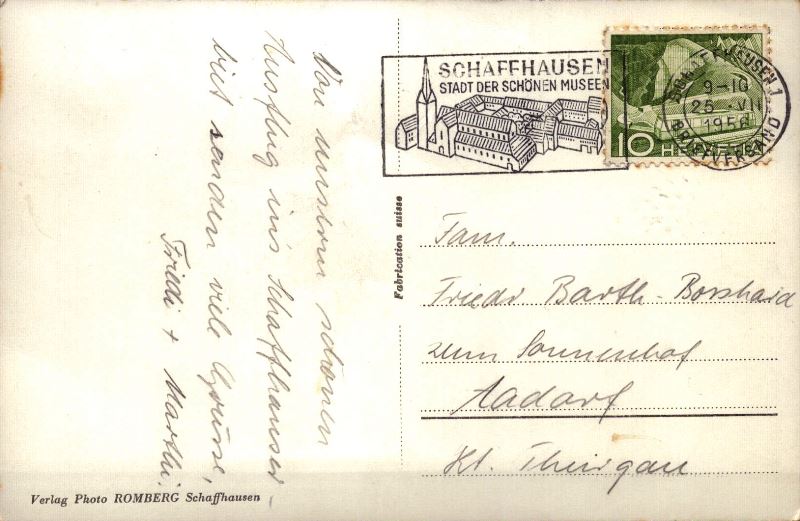 Von unserem schönen
Ausflug ins Schaffhauser
biet senden viele Grüsse,
Friedi + Marthi.
Verlag Photo ROMBERG Schaffhausen
Fabrication suisse
SCHAFFHAUSEN
STADT DER SCHÖNEN MUSEEN
SCHAFFHAUSEN 1
9-10
25.-VII
1956
BRIEFVERSAND
10 HELVETIA
Fam.
Friedr Barth-Bosshard
zum Sonnenhof
Aadorf
Kt. Thurgau